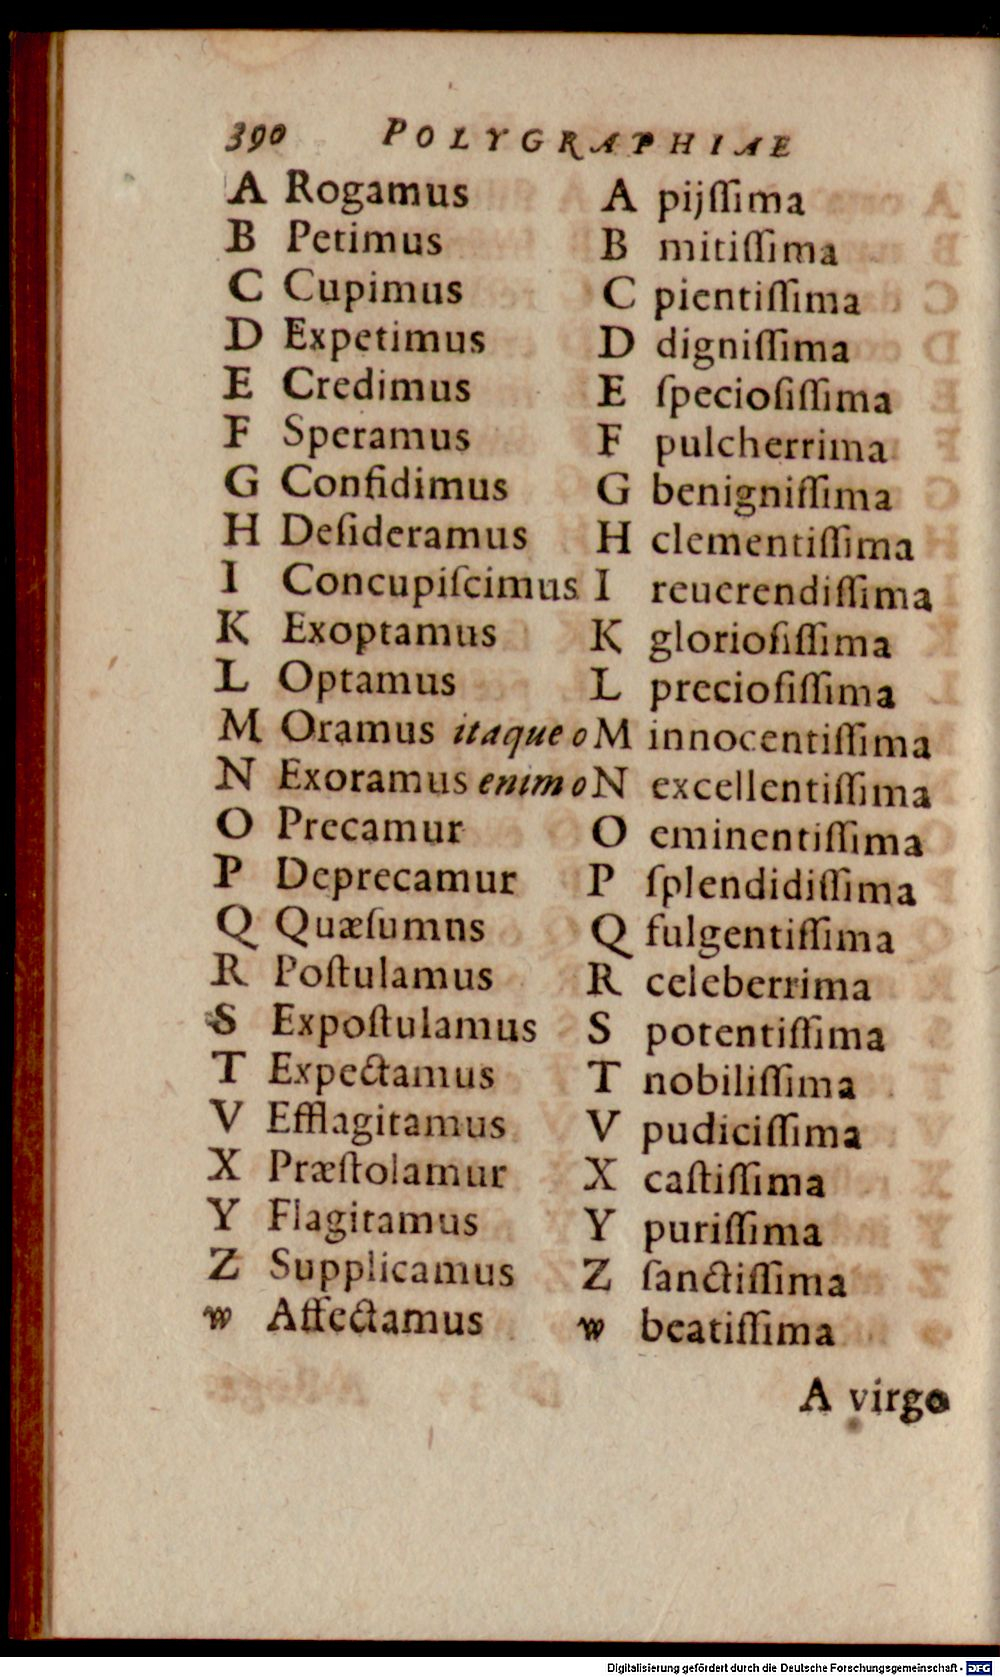 390 POLYGRAPHIAE
A Rogamus A pijſſima
B Petimus B mitiſſima
C Cupimus C pientiſſima
D Expetimus D digniſſima
E Credimus E ſpecioſiſſima
F Speramus F pulcherrima
G Confidimus G benigniſſima
H Deſideramus H clementiſſima
I Concupiſcimus I reuerendiſſima
K Exoptamus K glorioſiſſima
L Optamus L precioſiſſima
M Oramus itaque o M innocentiſſima
N Exoramus enim o N excellentiſſima
O Precamur O eminentiſſima
P Deprecamur P ſplendidiſſima
Q Quæſumns Q fulgentiſſima
R Poſtulamus R celeberrima
S Expoſtulamus S potentiſſima
T Expectamus T nobiliſſima
V Efflagitamus V pudiciſſima
X Præſtolamur X caſtiſſima
Y Flagitamus Y puriſſima
Z Supplicamus Z ſanctiſſima
w Affectamus w beatiſſima
A virgo
Digitalisierung gefördert durch die Deutsche Forschungsgemeinschaft - DFG